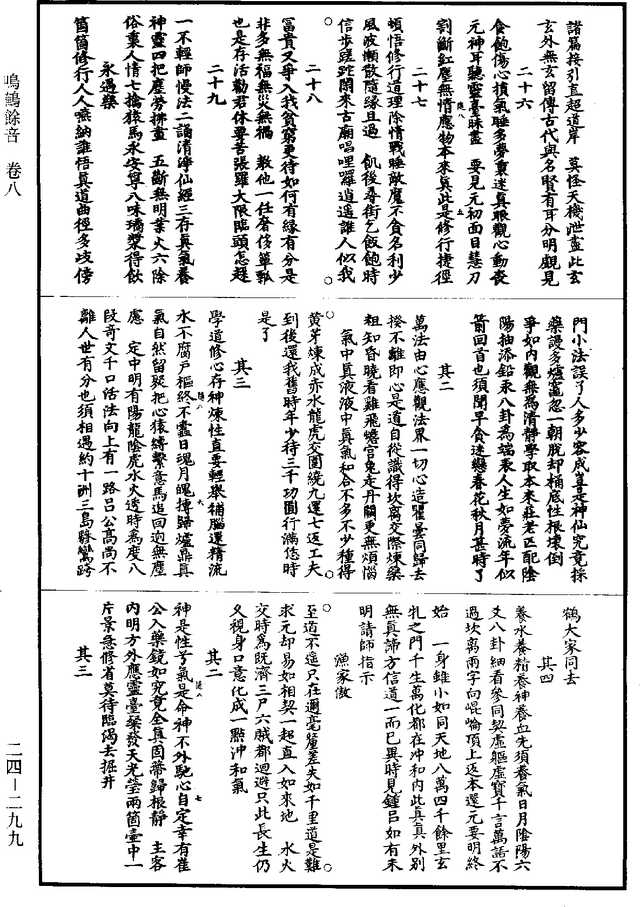 諸篇接引直超道岸　莫怪天機泄盡此玄
玄外無玄留傳古代與名賢有耳分明觀見
二十六
食飽傷心損氣睡多夢裏迷真眼觀心動喪
元神耳聽靈臺昧盡　要見元初面目慧刀
割斷紅塵無情應物本來真此是修行捷徑
二十七
頓悟修行道理除情戰睡敵魔不貪名利少
風波懶散隨緣且過　飢後尋街乞飯飽時
信步蹉跎閑來古廟唱哩囉逍遥誰人似我
二十八
富貴又爭入我貧窮更待如何有緣有分是
非多無福無災無禍　教他一任奢侈簞瓢
也是存活勸君休要苦張羅大限臨頭怎趓
二十九
一不輕師慢法二誦清淨仙經三存真氣養
神靈四把塵勞拂盡　五斷無明業火六除
俗裏人情七擒猿馬永安寧八味瓊漿得飲
永遇樂
箇箇修行人人嚥納誰悟真道曲徑多歧傍
門小法誤了人多少容成算是神仙究竟採
藥謾多爐竈忽一朝脫却桶底性根壞倒
爭如內觀無為清靜學取本來莊老匹配陰
陽抽添鉛汞八卦為端表人生如夢流年似
箭回首也須聞早貪迷戀春花秋月甚時了
其二
萬法由心應觀法界一切心造瞿曇同歸去
揆不離即心是道自從識得坎离交際煉藥
粗知昏曉看雞飛蟾宮兔走丹闕更無煩惱
氣中真液液中真氣和合不多不少種得
黃芽煉成赤水龍虎交圍繞九還七返工夫
到後還我舊時年少待三千功圓行滿恁時
是了
其三
學道修心存神煉性直要輕舉補腦還精流
水不腐戶樞終不蠹日魂月魄摶歸爐鼎真
氣自然留聚把心猿縛繫意馬追回迥無塵
慮　定中明有陽龍陰虎水火透時為度八
段奇文千口活法向上有一路呂公高尚不
離人世有分也須相遇約十洲三島驂鸞跨
鶴大家同去
其四
養水養精養神養血先須養氣日月陰陽六
爻八卦細看參同契虛軀虛寶千言萬語不
過坎离兩字向崐崙頂上返本還元要明終
始　一身雖小如同天地八萬四千餘里玄
牝之門千生萬化都在沖和內此真真外別
無真諦方信道一而已異時見鍾呂如有未
明請師指示
漁家傲
至道不遥只在邇毫釐差失如千里道是難
求元却易如相契一超直入如來地　水火
交時為既濟三尸六賊都迴避只此長生仍
久視身口意化成一點沖和氣
其二
神是性兮氣是命神不外馳心自定幸有崔
公入藥鏡如究竟全真固蔕歸根靜　主客
內明方外應靈臺燊發天光瑩兩箇壺中一
片景急修省莫待臨渴去掘井
其三
鳴鶴餘音　卷八
二四－二九九